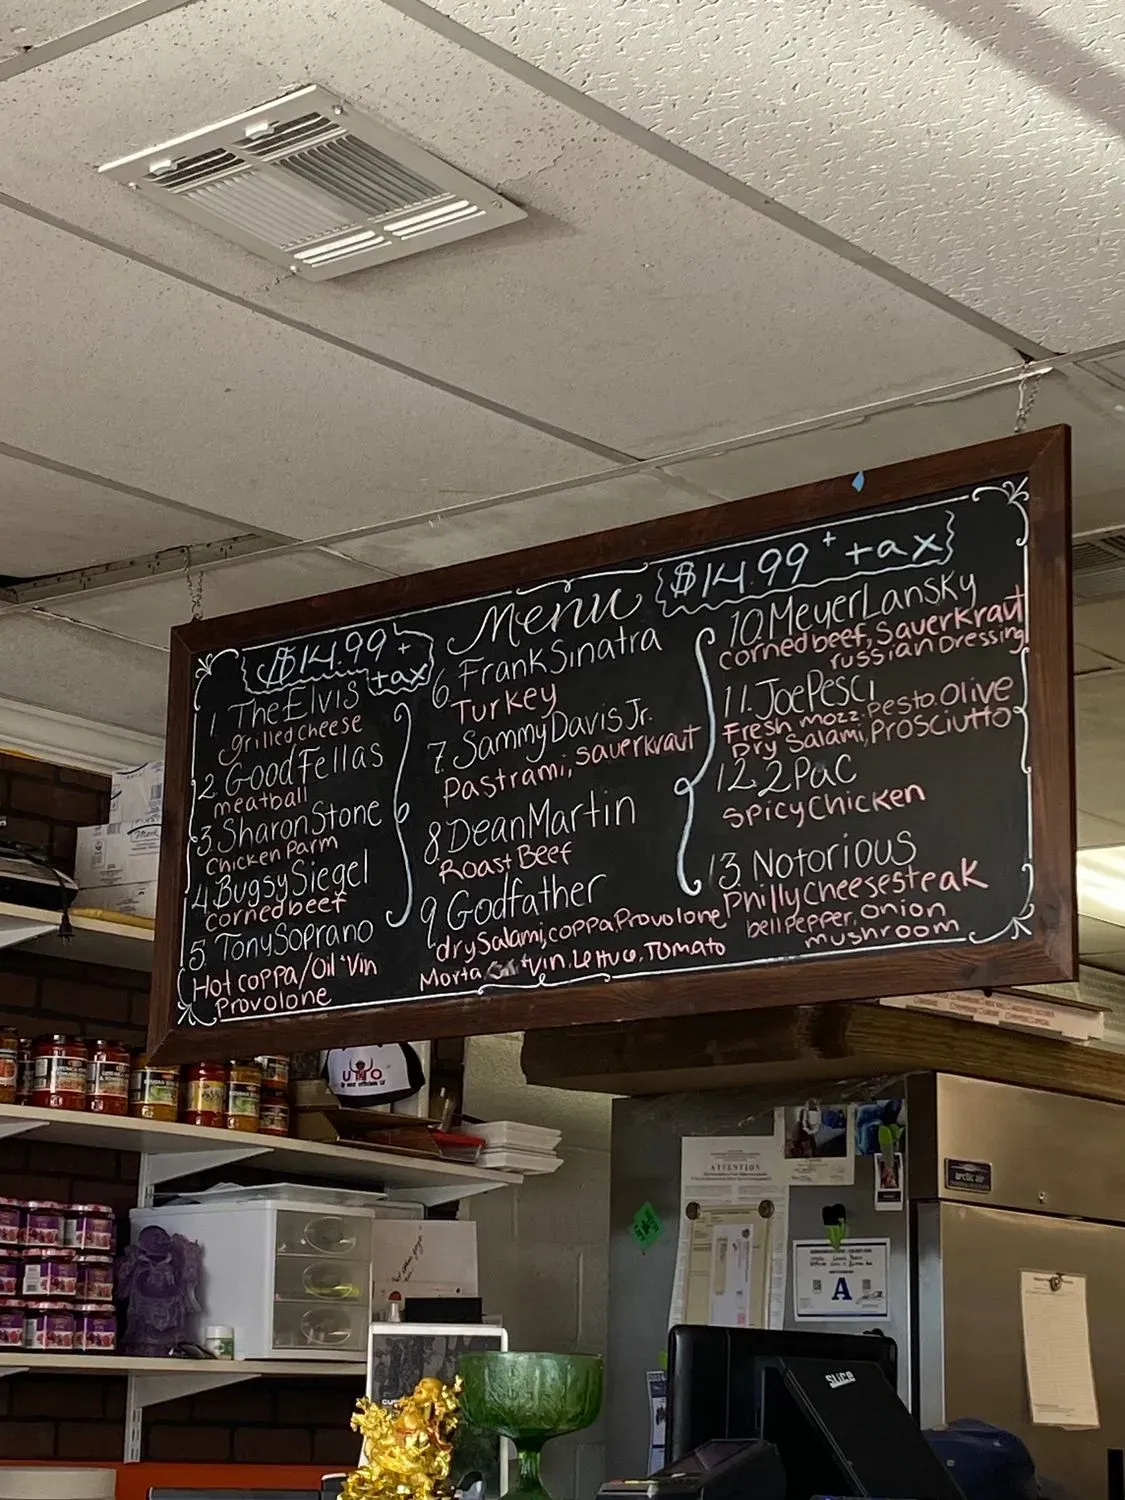 Menu
$14.99 +
tax
1 The Elvis
grilled cheese
2. GoodFellas
meatball
3. Sharon Stone
Chicken Parm
4. Bugsy Siegel
corned beef
5 Tony Soprano
Hot coppa/Oil + Vin
Provolone
6 Frank Sinatra
Turkey
7. Sammy Davis Jr.
Pastrami, sauerkraut
8 Dean Martin
Roast Beef
9 Godfather
dry Salami, coppa, Provolone
Morta Vin, Lettuce, Tomato
$14.99 + tax
10. Meyer Lansky
corned beef, Sauerkraut
russian Dressing
11. Joe Pesci
Fresh mozz. Pesto. Olive
Dry Salami, Prosciutto
12. 2Pac
Spicy Chicken
13. Notorious
Philly Cheesesteak
bell Pepper, Onion
mushroom
ATTENTION
A
arctic air
SLICE